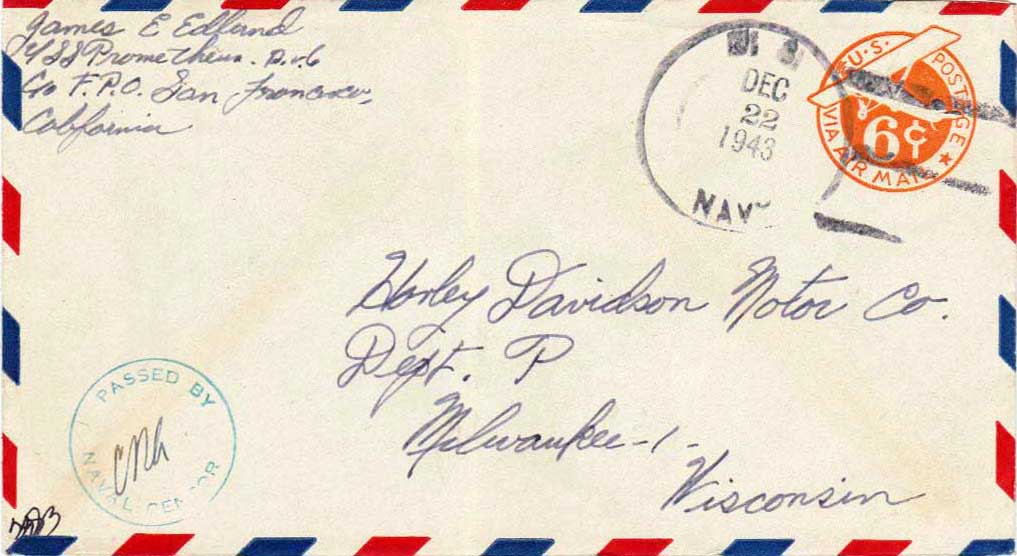 James E Edlund
USS Prometheus.
C/o F.P.O. San Francisco,
California
U.S.
DEC
22
1943
NAV
U.S. POSTAGE
6¢
VIA AIR MAIL
Harley Davidson Motor Co.
Dept. P
Milwaukee-1-
Wisconsin
PASSED BY
NAVAL CENSOR